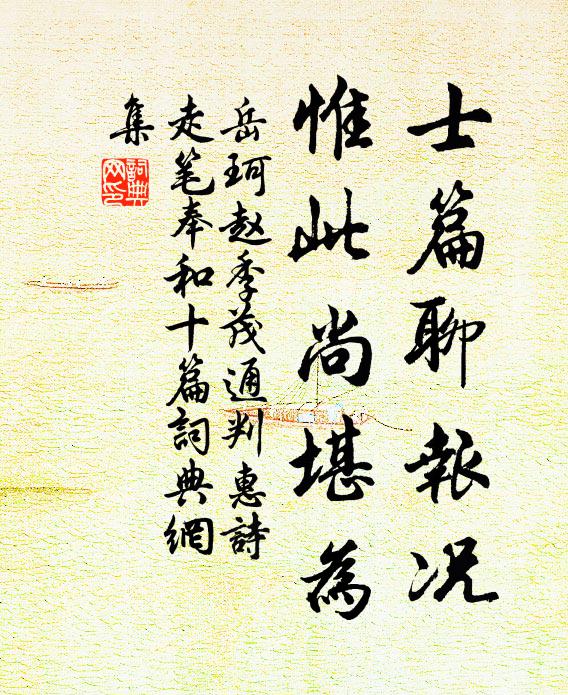 士篇聊報況
惟此尚堪為
岳珂赵季茂通判惠詩
走笔奉和十篇詞典網
集
詞典網印